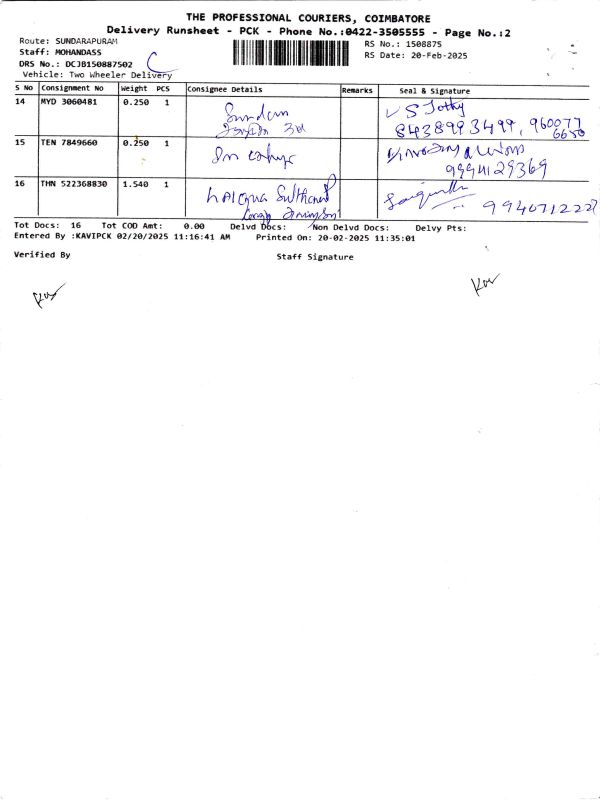 THE PROFESSIONAL COURIERS, COIMBATORE
Delivery Runsheet - PCK - Phone No.:0422-3505555 - Page No.:2
Route: SUNDARAPURAM
Staff: MOHANDASS
DRS No.: DCJB150887502 C
Vehicle: Two Wheeler Delivery
RS No.: 1508875
RS Date: 20-Feb-2025
S No Consignment No Weight PCS Consignee Details Remarks Seal & Signature
14 MYD 3060481 0.250 1
8438993499, 960077
6650
15 TEN 7849660 0.250 1
9994129369
16 THN 522368830 1.540 1
9940712227
Tot Docs: 16 Tot COD Amt: 0.00 Delvd Docs: Non Delvd Docs: Delvy Pts:
Entered By :KAVIPCK 02/20/2025 11:16:41 AM Printed On: 20-02-2025 11:35:01
Verified By Staff Signature